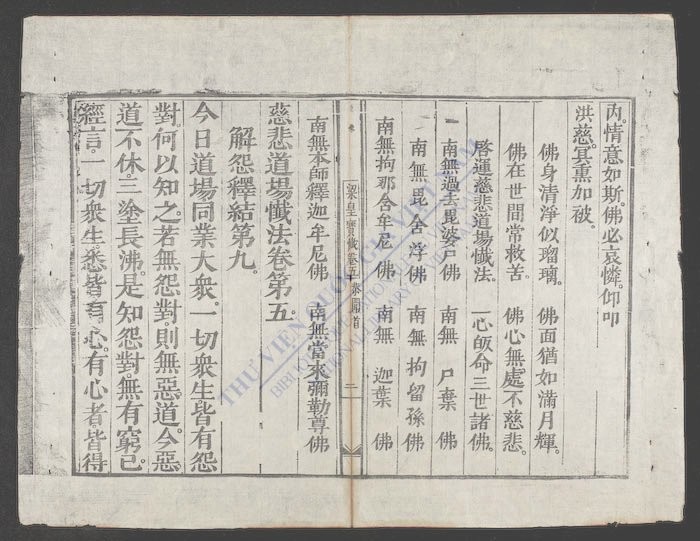 丙。情意如斯。佛必哀憐。仰叩
洪慈。冥熏加被。
佛身清淨似瑠璃。 佛面猶如滿月輝。
佛在世間常救苦。 佛心無處不慈悲。
啓運慈悲道場懺法。 一心皈命三世諸佛。
南無過去毘婆尸佛 南無 尸棄 佛
南無毘舍浮佛 南無拘留孫佛
南無拘那含牟尼佛 南無 迦葉 佛
梁皇寶懺卷五 開首 二
南無本師釋迦牟尼佛 南無當來彌勒尊佛
慈悲道場懺法卷第五
解怨釋結第九。
今日道場同業大衆。一切衆生。皆有怨
對。何以知之。若無怨對。則無惡道。今惡
道不休。三塗長沸。是知怨對。無有窮已。
經言。一切衆生。悉皆有心。有心者皆得
THƯ VIỆN QUỐC GIA VIỆT NAM